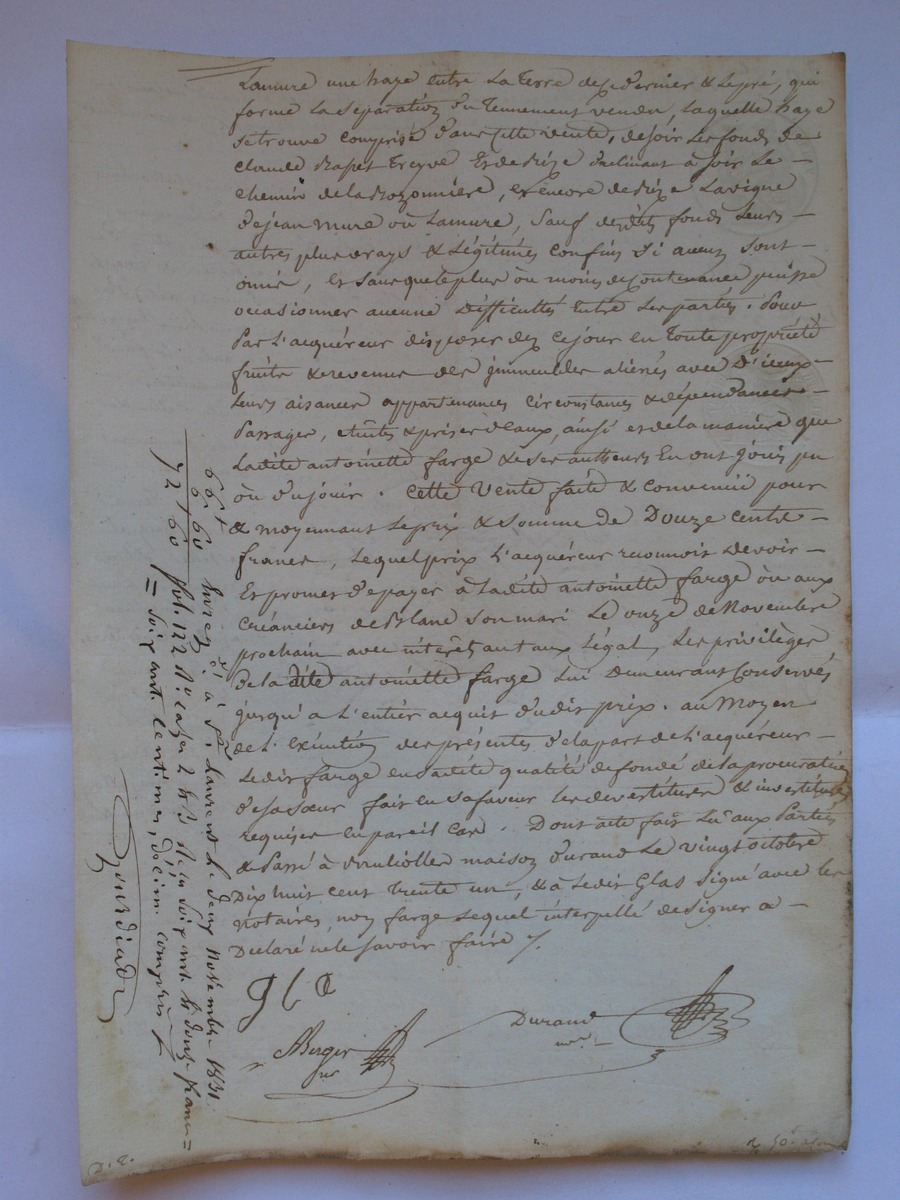 Lamure une haye entre La terre de ce dernier & Le pré, qui
forme La séparation du Tennement vendu, Laquelle haye
se trouve comprise dans cette vente, de soir Les fonds de
claude Rapet Treyve Et de Bize declinant à soir Le –
chemin de la Rozonnière, et encore de Bize La vigne
de jean mure ou Lamure, Sauf desdits fonds Leurs –
autres plus vrays & Légitimes confins Si aucuns Sont –
omis, Et sans que le plus ou moins de Contenance puisse
occasionner aucune Difficultés Entre Les parties. Pour
Par L'acquéreur disposer dez ce jour en toute propriété
fruits & revenus des jmmeubles aliénés avec D'iceux –
Leurs aisances appartenances circonstances & dépendances
Passages, & prises d'eaux, ainsi et de la manière que
Ladite antoinette farge & ses autheurs En ont jouis pu
ou du jouir. Cette Vente faite & convenue pour
& moyennant Le prix & Somme de Douze cents –
francs, Lequel prix L'acquéreur reconnoit devoir –
Et promet de payer à Ladite antoinette farge ou aux
Créanciers de Blanc son mari Le onze de Novembre
prochain avec intérêt au taux Légal, Les privilèges
De la dite antoinette farge Lui Demeurant Conservés
jusqu'a L'entier acquit dudit prix. au Moyen
de L'Exécution des présentes de la part de L'acquéreur –
Ledit farge en sadite qualité de fondé de la procuration
de sa sœur fait en sa faveur Les devestitures & investitures
Requises En pareil Cas. Dont acte fait Lu aux Parties
& Passé à maison Durand Le vingt octobre
Dix huit cent trente un, & a Ledit Glas Signé avec les
notaires, non farge Lequel interpellé de signer a –
Declaré ne le Savoir faire /.
Gla
Berger
nre
Durand
nre
66 f
6 60
72 f 60
Enregé à St Laurent le deux Novembre 1831.
fol. 122 Ro cases 2 & 3 Reçu soixante & douze francs
soixante centimes, décime compris
D. E.